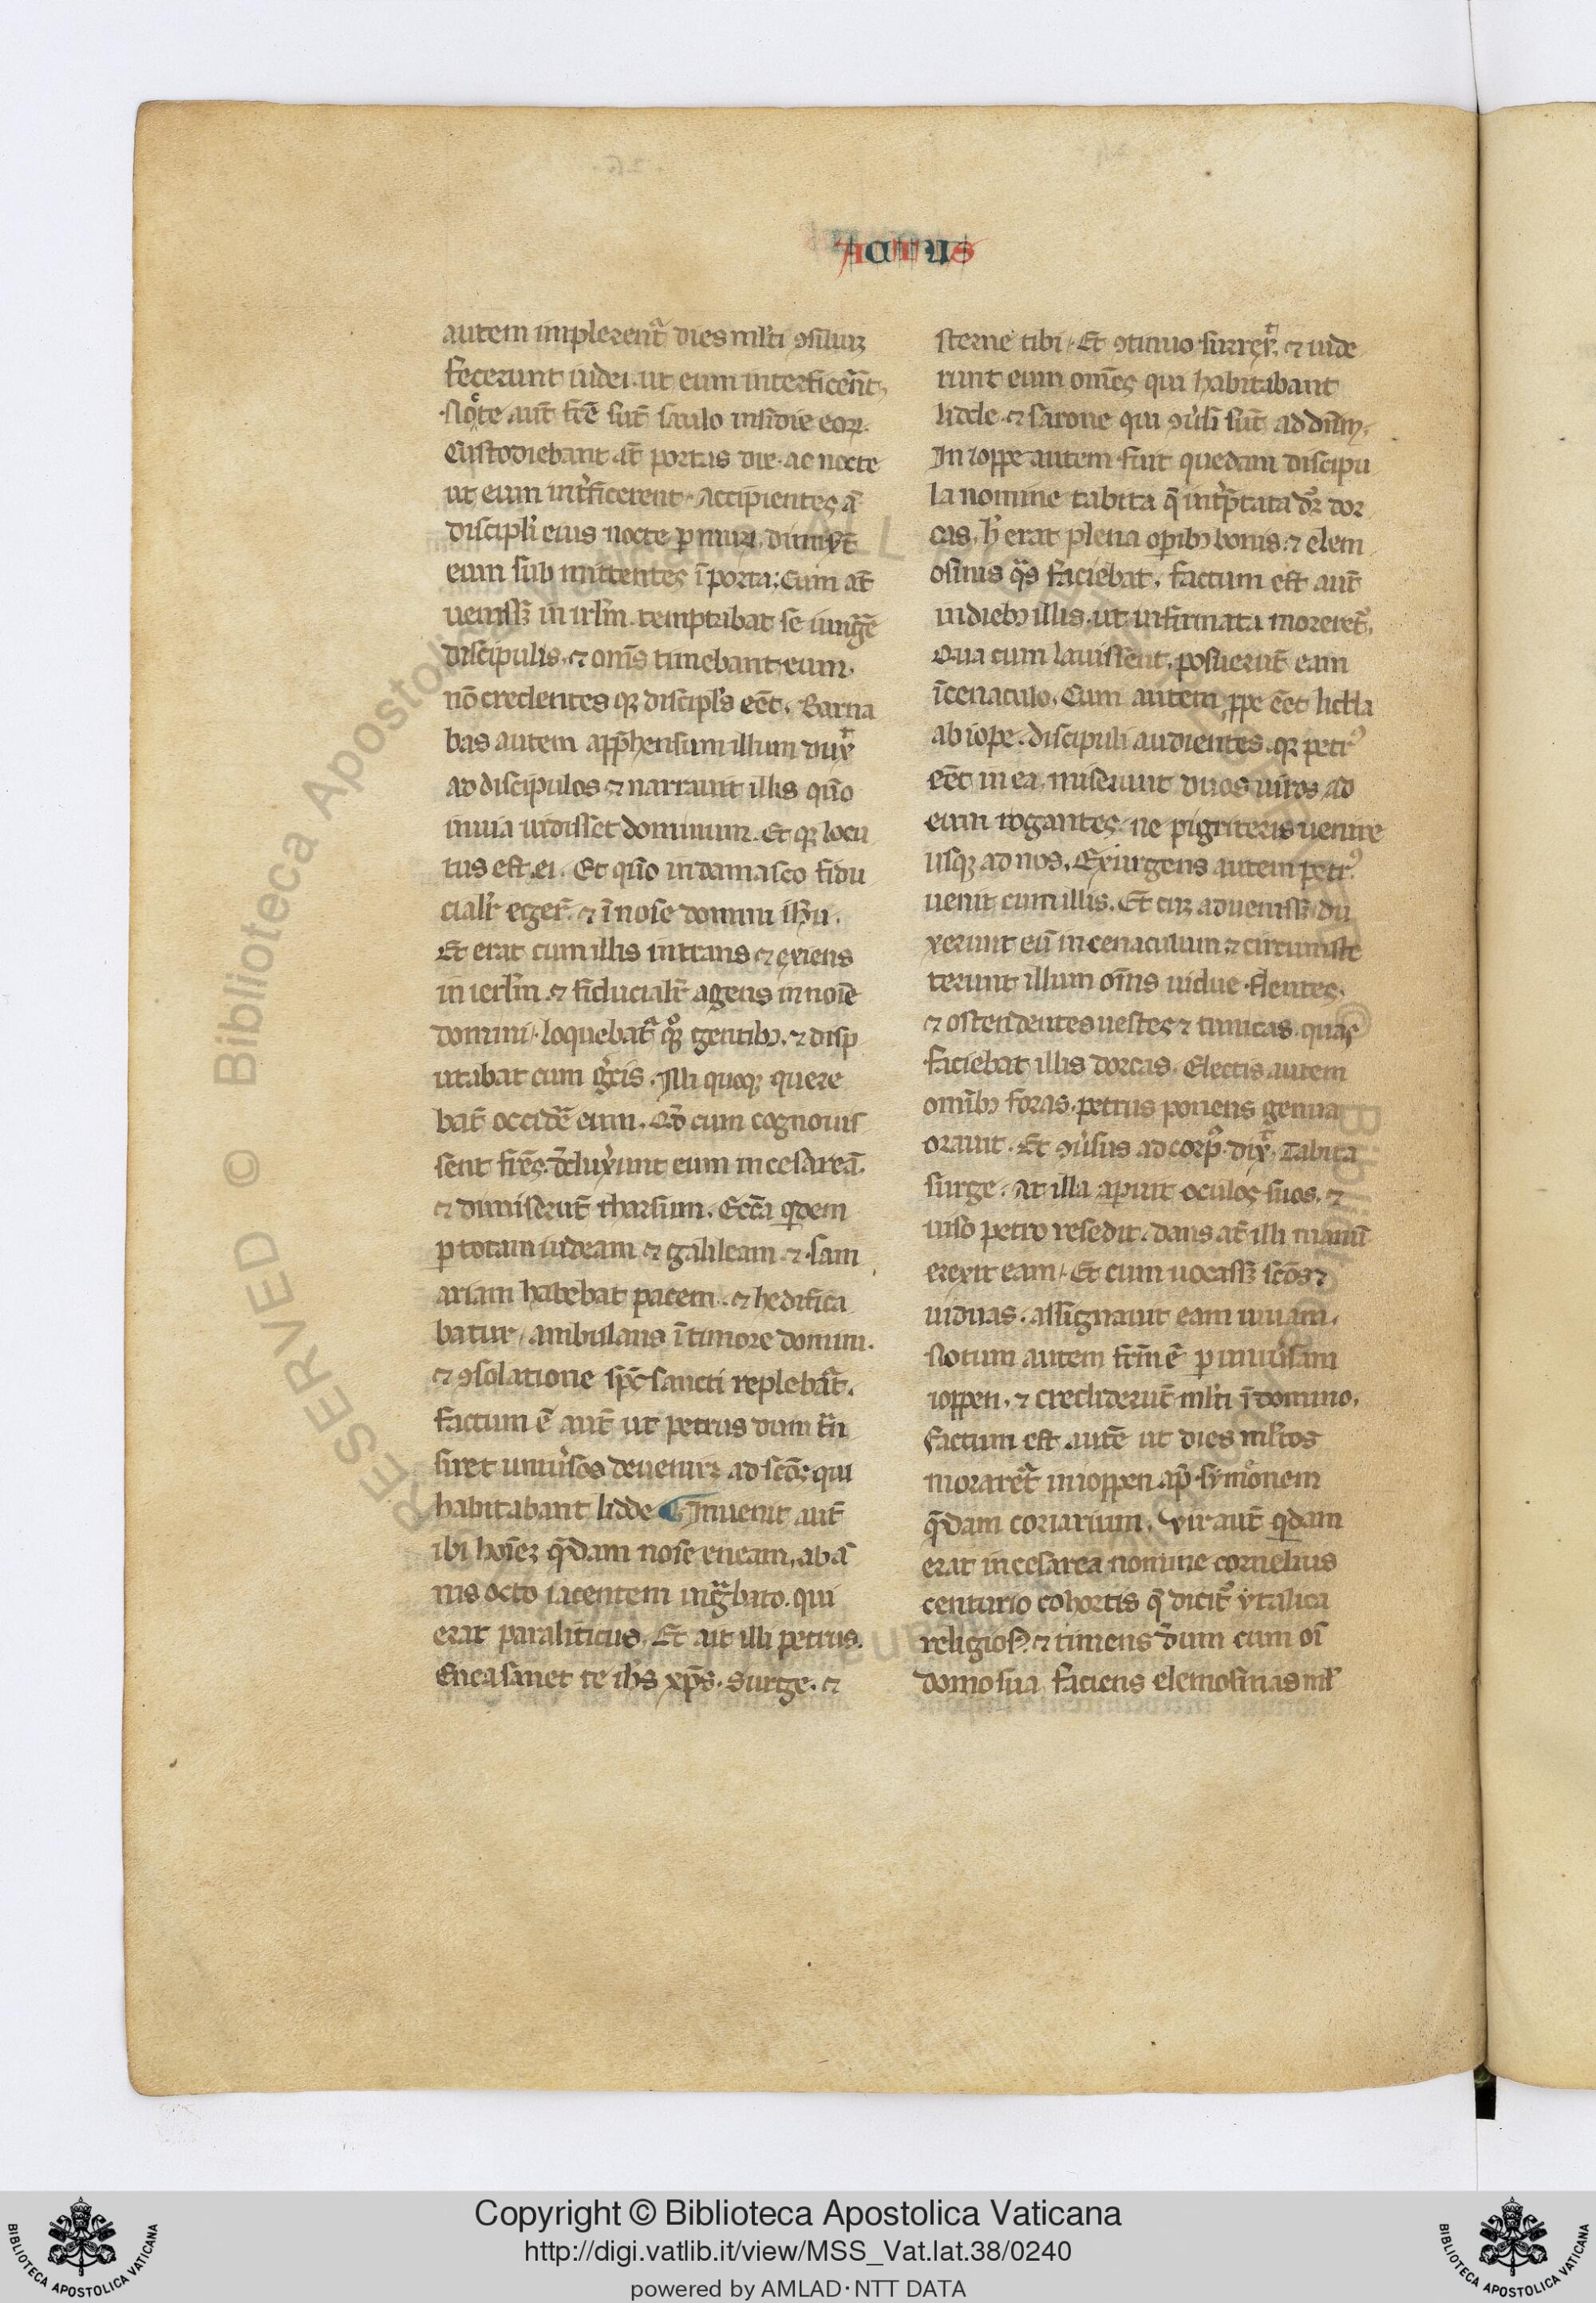 ACTUS
autem implerent᷑ dies ml̄ti ꝯsiliuꝫ
fecerunt iudei. ut eum interficer̄ēt,
Note aut̄ fc̄e sut̄ saulo insidie eoꝝ.
Custodiebant at̄ portas die. ac nocte
ut eum int̓ficerent. Accipientes a᷑
discipli eius nocte ꝑ muꝝ, dimiser̄t
eum submittentes ī porta; Cum at̄
uenissꝫ in irl̄m. temptabat se iungr̄e
discipulis. ⁊ om̄s timebant eum.
nō credentes qꝫ discipl̓s eēt. Barna
bas autem app̄hensum illum dux᷑
ad discipulos ⁊ narrauit illis quō
in uia uidisset dominum. Et qꝫ locu
tus est ei. Et quō in damasco fidu
cialr̄ eger̄. ⁊ ī noīe domini ih̄u.
Et erat cum illis intrans ⁊ exiens
in ierl̄m. ⁊ fiducialr̄ agens in noīe
domini. loquebat᷑ qͦꝫ gentibꝫ. ⁊ disp
utabat cum gͥcis. Illi quoqꝫ quere
bat̄ occidr̄e eum. Qd̄ cum cognouis
sent fr̄es. deduxer̄unt eum in cesareā.
⁊ dimiserut̄ tharsum. Eccl̄a qͥdem
ꝑ totam iudeam ⁊ galileam ⁊ sam
ariam habebat pacem. ⁊ hedifica
batur, ambulans ī timore domini.
⁊ ꝯsolatione sp̄c sancti replebat᷑.
factum ē aut̄ ut petrus dum trā
siret uniuͥsos deueniret ad sc̄os qui
habitabant lidde ¶ Inuenit aut̄
ibi hoīeꝫ qͣdam noīe eneam, ab a᷑
nis octo iacentem in grͣbato. qui
erat paraliticus. Et ait illi petrus.
Enea sanet te ih̄s xp̄s. Surge. ⁊
sterne tibi. Et ꝯtinuo surrex᷑. ⁊ uide
runt eum om̄es qui habitabant
lidde. ⁊ sarone qui ꝯuͥsi sut̄ ad dn̄m.
In ioppe autem fuit quedam discipu
la nomine tabita q̄ int̓p̄tata dr̄ dor
cas, h̓ erat plena oꝑibꝫ bonis. ⁊ elem
osinis qͣs faciebat. factum est aut̄
in diebꝫ illis. ut infirmata moreret᷑.
Qua cum lauissent, posuerut̄ eam
ī cenaculo. Cum autem ꝓpe eēt lidda
ab iope. discipuli audientes. qꝫ petrꝰ
eēt in ea. miserunt duos uiros ad
eum rogantes. ne pigriteris uenire
usqꝫ ad nos. Exiurgens autem petrꝰ
uenit cum illis. Et cuꝫ aduenissꝫ du
xerunt eū in cenaculum ⁊ circumste
terunt illum om̄s uidue flentes.
⁊ ostendentes uestes ⁊ tunicas. quas
faciebat illis dorcas. Electis autem
omībꝫ foras. petrus ponens genua
orauit. Et ꝯuͥsus ad corpꝰ. dix᷑. Tabita
surge. At illa aꝑuit oculos suos. ⁊
uiso petro resedit. dans at̄ illi manū
erexit eam. Et cum uocassꝫ sc̄os ⁊
uiduas. assignauit eam uiuam.
Notum autem fcm̄ ē ꝑ uniuͥsam
ioppen. ⁊ crediderut̄ ml̄ti ī domino.
factum est autē ut dies ml̄tos
moraret᷑ in ioppen ap̄ symonem
qͣdam coriarium. Vir aut̄ qͥdam
erat in cesarea nomine cornelius
centurio cohortis q̄ dicit᷑ ytalica
religiosꝰ. ⁊ timens d̄um cum oī
domo sua. faciens elemosinas ml̄
RESERVED © Biblioteca Apostolica
Copyright © Biblioteca Apostolica Vaticana
http://digi.vatlib.it/view/MSS_Vat.lat.38/0240
powered by AMLAD·NTT DATA
BIBLIOTECA APOSTOLICA VATICANA
BIBLIOTECA APOSTOLICA VATICANA